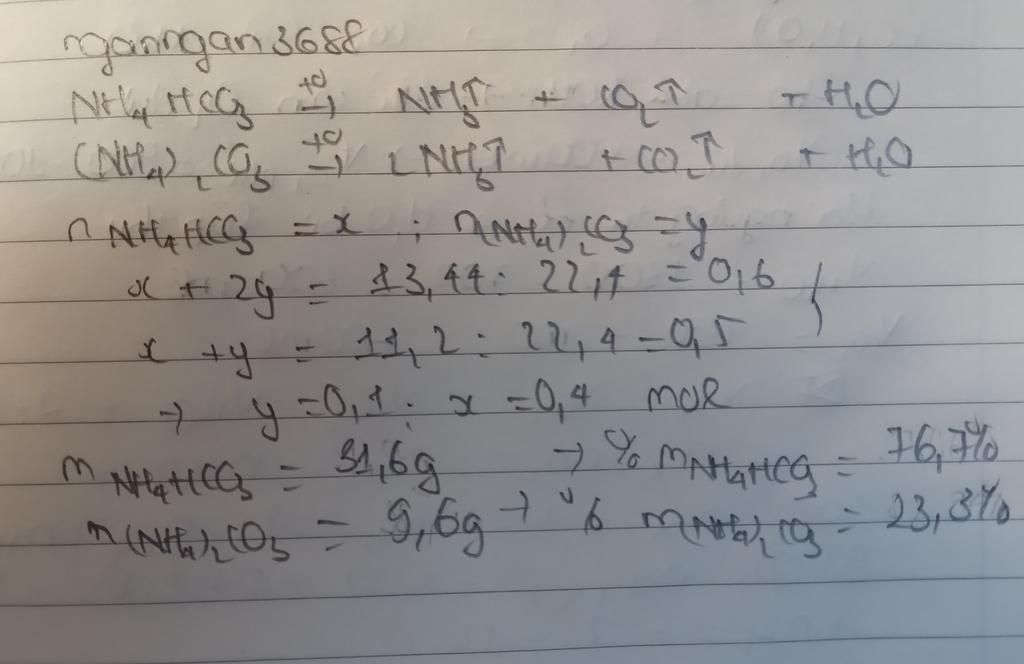 nganngan3688
NH₄HCO₃ →(t°) NH₃↑ + CO₂↑ + H₂O
(NH₄)₂CO₃ →(t°) 2NH₃↑ + CO₂↑ + H₂O
n NH₄HCO₃ = x ; n(NH₄)₂CO₃ = y
x + 2y = 13,44 : 22,4 = 0,6 }
x + y = 11,2 : 22,4 = 0,5
→ y = 0,1 ; x = 0,4 mol
m NH₄HCO₃ = 31,6g → % m NH₄HCO₃ = 76,7%
m(NH₄)₂CO₃ = 9,6g → % m(NH₄)₂CO₃ = 23,3%